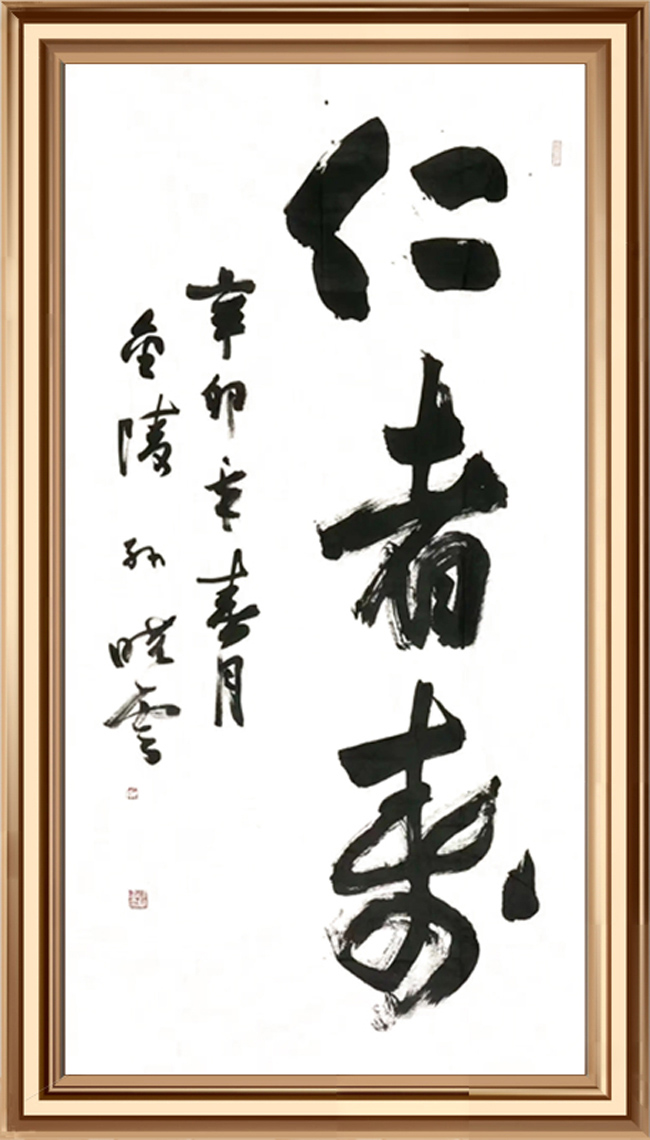 仁者寿
辛卯年春月
金陵孙晓雲